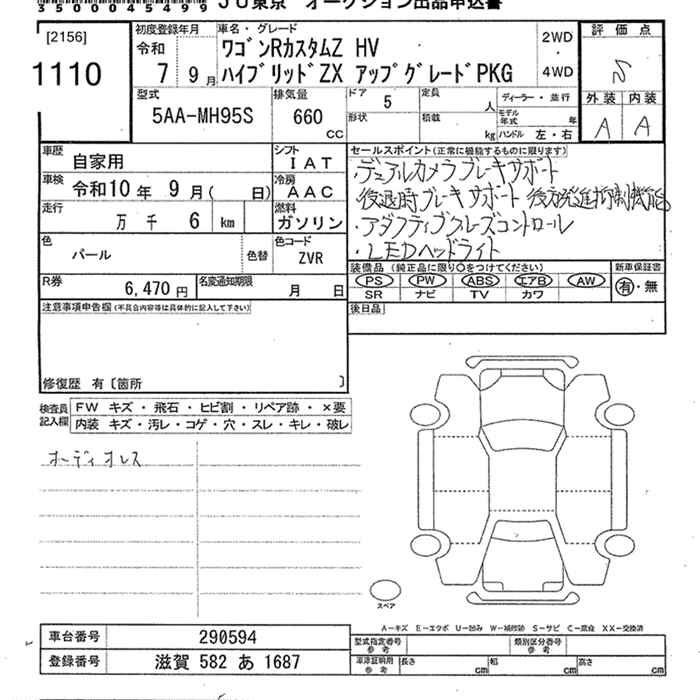 35000045499 JU東京 オークション出品申込書
[2156]
1110
初度登録年月
令和
7 9月
車名・グレード
ワゴンRカスタムZ HV
ハイブリッドZX アップグレードPKG
2WD
・
4WD
評価点
S
外装 内装
A A
型式
5AA-MH95S
排気量
660
CC
ドア 5
形状
定員 人
積載 kg
ディーラー・並行
モデル年式 年
ハンドル 左・右
車歴 自家用
シフト IAT
車検 令和10年 9月( 日)
冷房 AAC
走行 万 千 6 km
燃料 ガソリン
色 パール 色替
色コード ZVR
R券 6,470円
名変通知期限 月 日
セールスポイント(正常に機能するものに限ります)
・デュアルカメラブレーキサポート
後退時ブレーキサポート 後方発進抑制機能
・アダプティブクルーズコントロール
・LEDヘッドライト
装備品(純正品に限り○をつけてください)
PS PW ABS エアB AW
SR ナビ TV カワ
新車保証書
有・無
後日品
注意事項申告欄(不具合内容等は具体的に記入して下さい)
修復歴 有〔箇所 〕
検査員記入欄
FW キズ・飛石・ヒビ割・リペア跡・×要
内装 キズ・汚レ・コゲ・穴・スレ・キレ・破レ
オーディオレス
スペア
A―キズ E―エクボ U―凹み W―補修跡 S―サビ C―腐食 XX―交換済
車台番号 290594
登録番号 滋賀 582 あ 1687
型式指定番号 参考
類別区分番号 参考
車庫証明用 参考
長さ cm
幅 cm
高さ cm